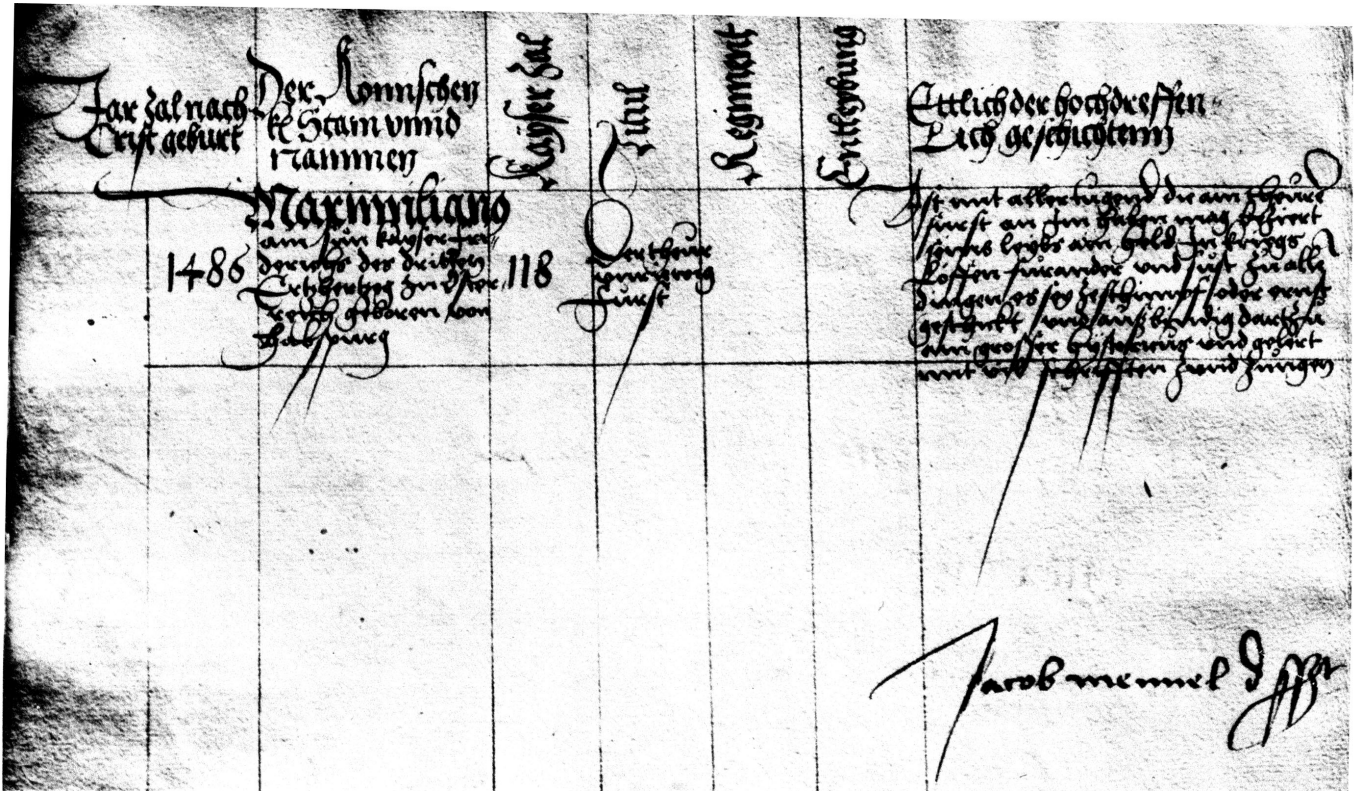 Jar Zal nach
Crist geburt
Der Romischen
k Stam vnnd
nammen
Kayser Zal
Titul
Regiment
Entleybung
Ettlich der hochdreffen-
Lich geschichtenn
1486
Maximiliano
ain sun kayser Fri-
derichs des dritten
Ertzhertzog zu Oster-
reich geboren von
Habspurg
118
Der theur
vnnd
Furst
Ist mit aller tugend die ain theure
furst an Im haben mag geziert
seins leybs ain held In kriegs
furander vnd sust zu alle
dingen es sey ze schimpf oder ernst
geschickt vnd aussbindig dartzu
ain grosser hystoricus vnd gelert
mit vil schrifften vnd zungen
Jacob mennel d